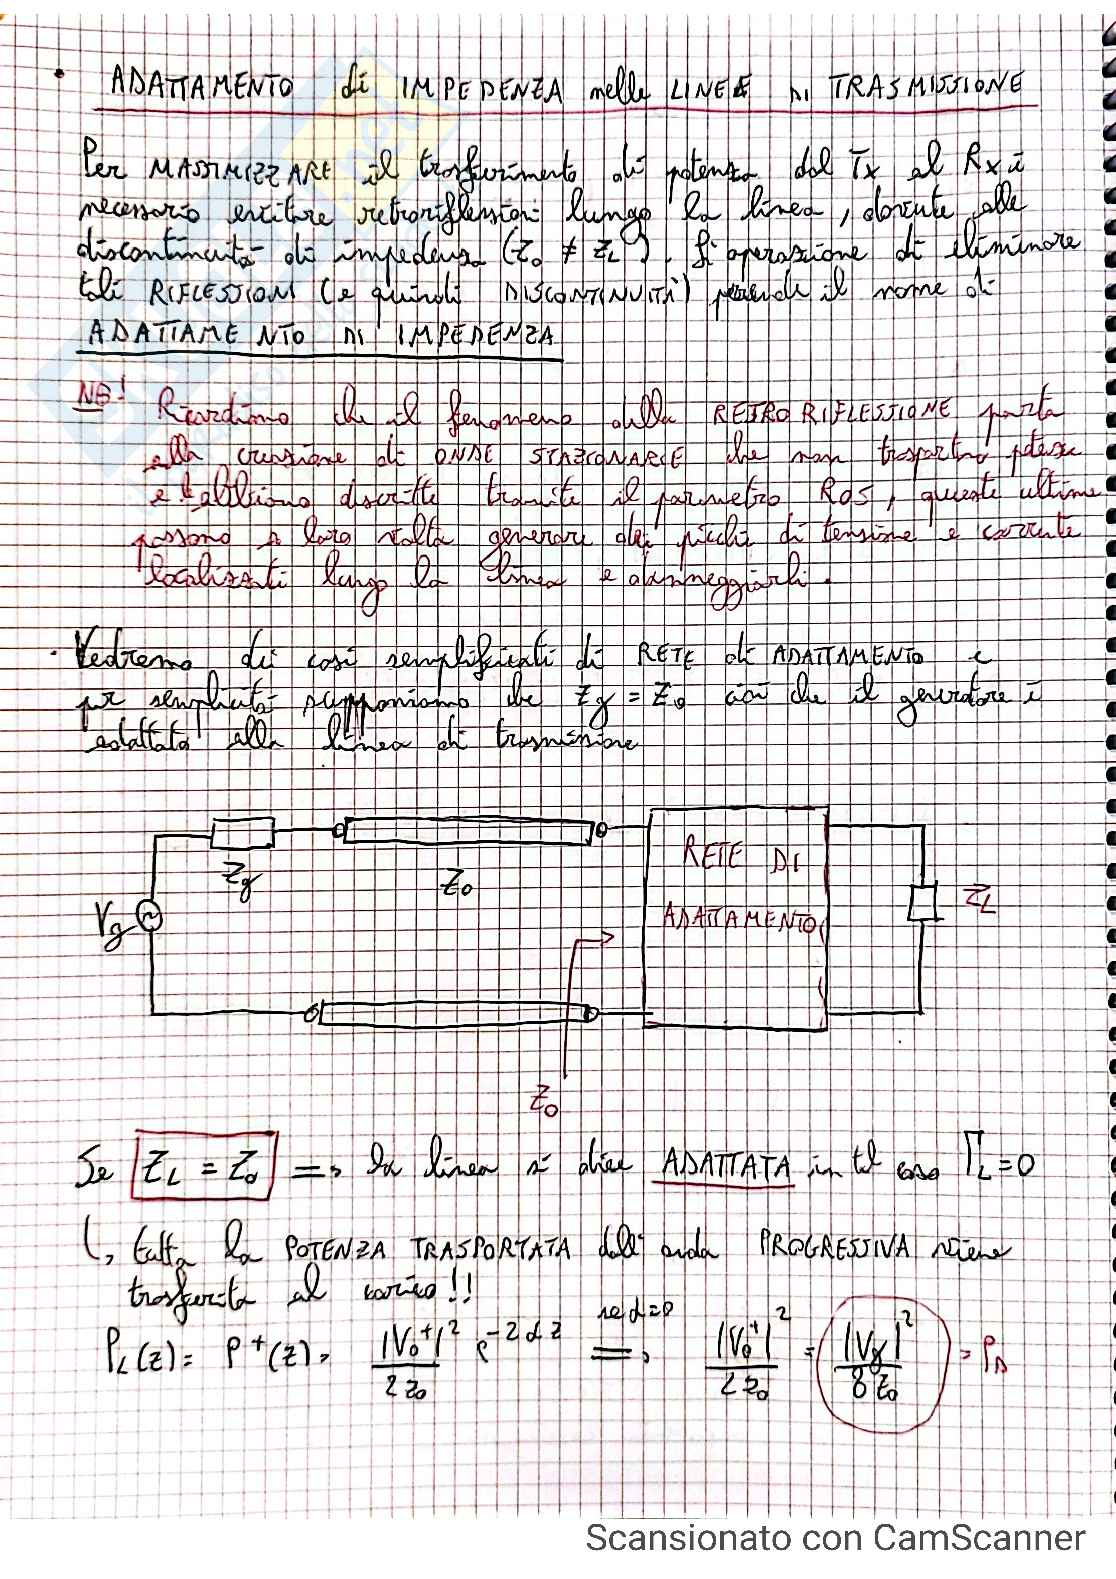 • ADATTAMENTO di IMPEDENZA nelle LINEE DI TRASMISSIONE
Per MASSIMIZZARE il trasferimento di potenza dal Tx al Rx è
necessario evitare retroriflessioni lungo la linea, dovute alle
discontinuità di impedenza (Z₀ ≠ ZL). L'operazione di eliminare
tali RIFLESSIONI (e quindi DISCONTINUITÀ) prende il nome di
ADATTAMENTO DI IMPEDENZA
NB! Ricordiamo che il fenomeno della RETRORIFLESSIONE porta
alla creazione di ONDE STAZIONARIE che non trasportano potenza
e abbiamo descritte tramite il parametro ROS, queste ultime
possono a loro volta generare dei picchi di tensione e corrente
localizzati lungo la linea e danneggiarli.
• Vedremo dei casi semplificati di RETE di ADATTAMENTO e
per semplicità supponiamo che Zg = Z₀ cioè che il generatore è
adattato alla linea di trasmissione
Zg
Z₀
RETE DI
ADATTAMENTO
ZL
Vg
Z₀
Se ZL = Z₀ => la linea si dice ADATTATA in tal caso ΓL=0
↳ tutta la POTENZA TRASPORTATA dall'onda PROGRESSIVA viene
trasferita al carico!!
PL(z) = P⁺(z) = |V₀⁺|²/2Z₀ e^-2αz => se α=0 |V₀⁺|²/2Z₀ = |Vg|²/8Z₀ = PD
Scansionato con CamScanner